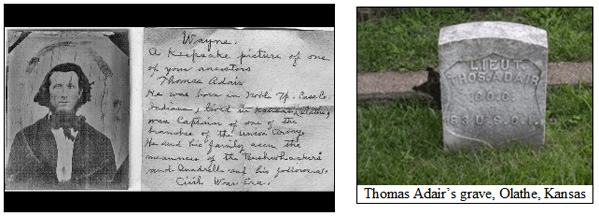 Wayne.
A Keepsake picture of one
of your ancestors
Thomas Adair
He was born in Noble Tp. Cass Co.
Indiana, lived in Kansas (Olathe)
was Captain of one of the
branches of the Union Army.
He and his family seen the
meanness of the Bushwhackers
and Quadrells and his followers.
Civil War Era.
LIEUT.
THOS. ADAIR
CO.
U.S.C.I.
Thomas Adair's grave, Olathe, Kansas